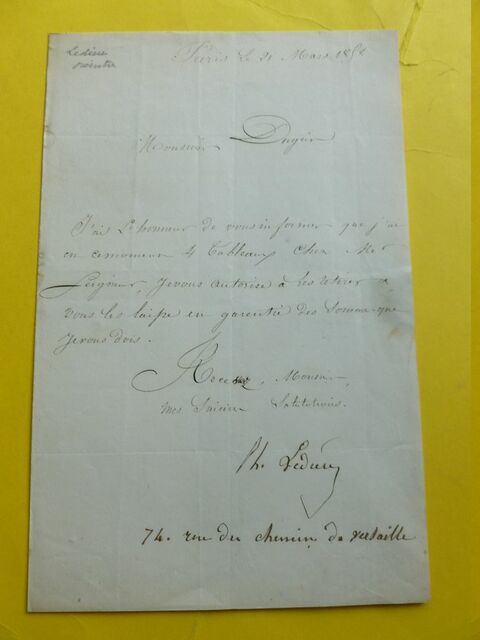 peintre
Paris le 21 Mars 185
Monsieur
J'ais L'honneur de vous informer que j'ai
en cemoment 4 Tableaux Chez Mr
Seigneur, Jevous autorise à Les retirer
vous les laisse en garentie des somme que
Jevous dois.
Recevez, Monsieur
mes Sincère Salutations.
Ph. Ledieu
74. rue du chemin de versaille